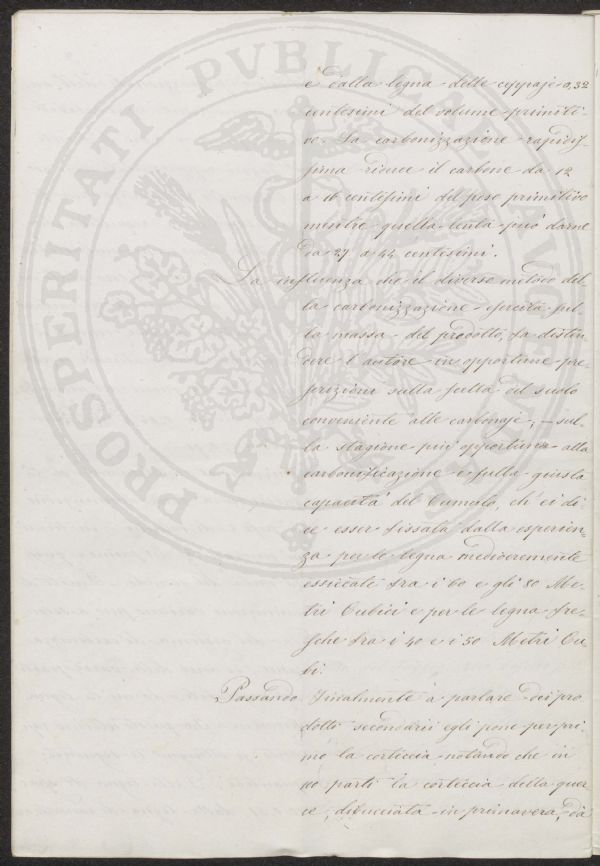 PROSPERITATI PUBLICAE AU
e dalla legna delle ceppaje 0,32
centesimi del volume primiti-
vo. La carbonizzazione rapidis-
sima riduce il carbone da 12
a 16 centesimi del peso primitivo
mentre quella lenta può darne
da 27 a 44 centesimi.
La influenza che il diverso metodo del-
la carbonizzazione esercita sul-
la massa del prodotto, fa disten-
dere l'autore in opportune pre-
scrizioni sulla scelta del suolo
conveniente alle carbonaje, – sul-
la stagione più opportuna alla
carbonificazione e sulla giusta
capacità del Cumulo, ch'ei di-
ce esser fissata dalla esperien-
za per le legna mediocremente
essiccate fra i 60 e gli 80 Me-
tri Cubici e per le legna fre-
sche fra i 40 e i 50 Metri Cu
bi.
Passando finalmente a parlare dei pro
dotti secondarii egli pone per pri-
mo la corteccia notando che in
100 parti la corteccia della quer
ce, dibucciata in primavera, dà